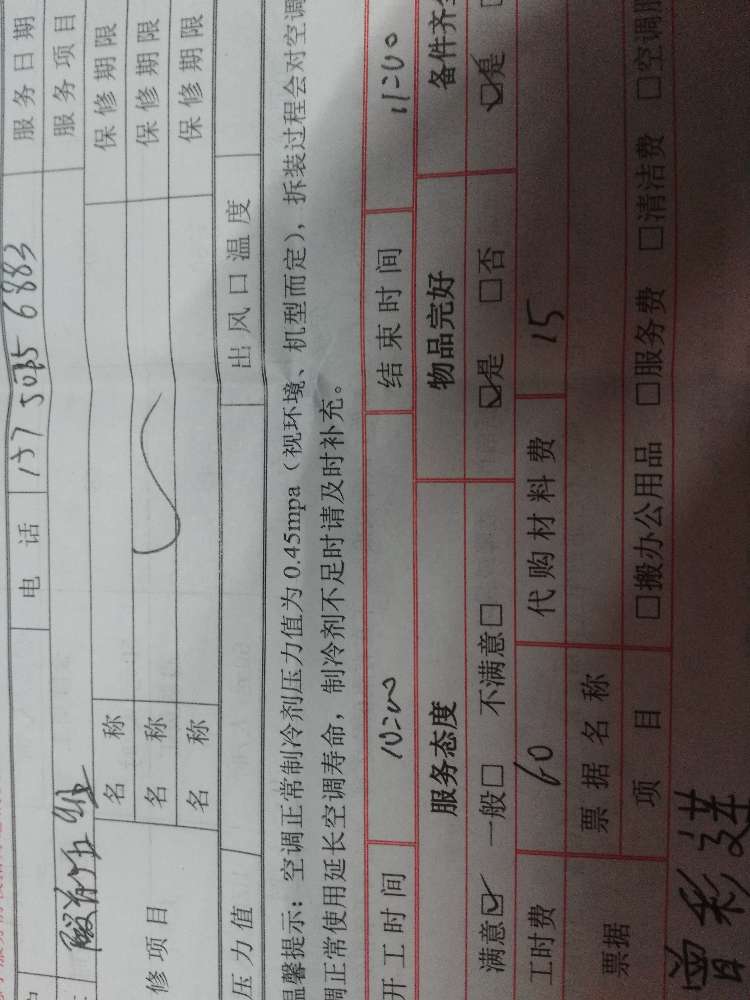 电 话 137 5085 6883 服务日期
服务项目
名 称 保修期限
修项目 名 称 保修期限
名 称 保修期限
压力值 出风口温度
温馨提示：空调正常制冷剂压力值为 0.45mpa（视环境、机型而定），拆装过程会对空调
调正常使用延长空调寿命，制冷剂不足时请及时补充。
开工时间 10:00 结束时间 11:00
服务态度 物品完好 备件齐全
满意☑ 一般□ 不满意□ ☑是 □否 ☑是
工时费 60 代购材料费 15
票据 票据名称
项 目 □搬办公用品 □服务费 □清洁费 □空调服
曾彩进